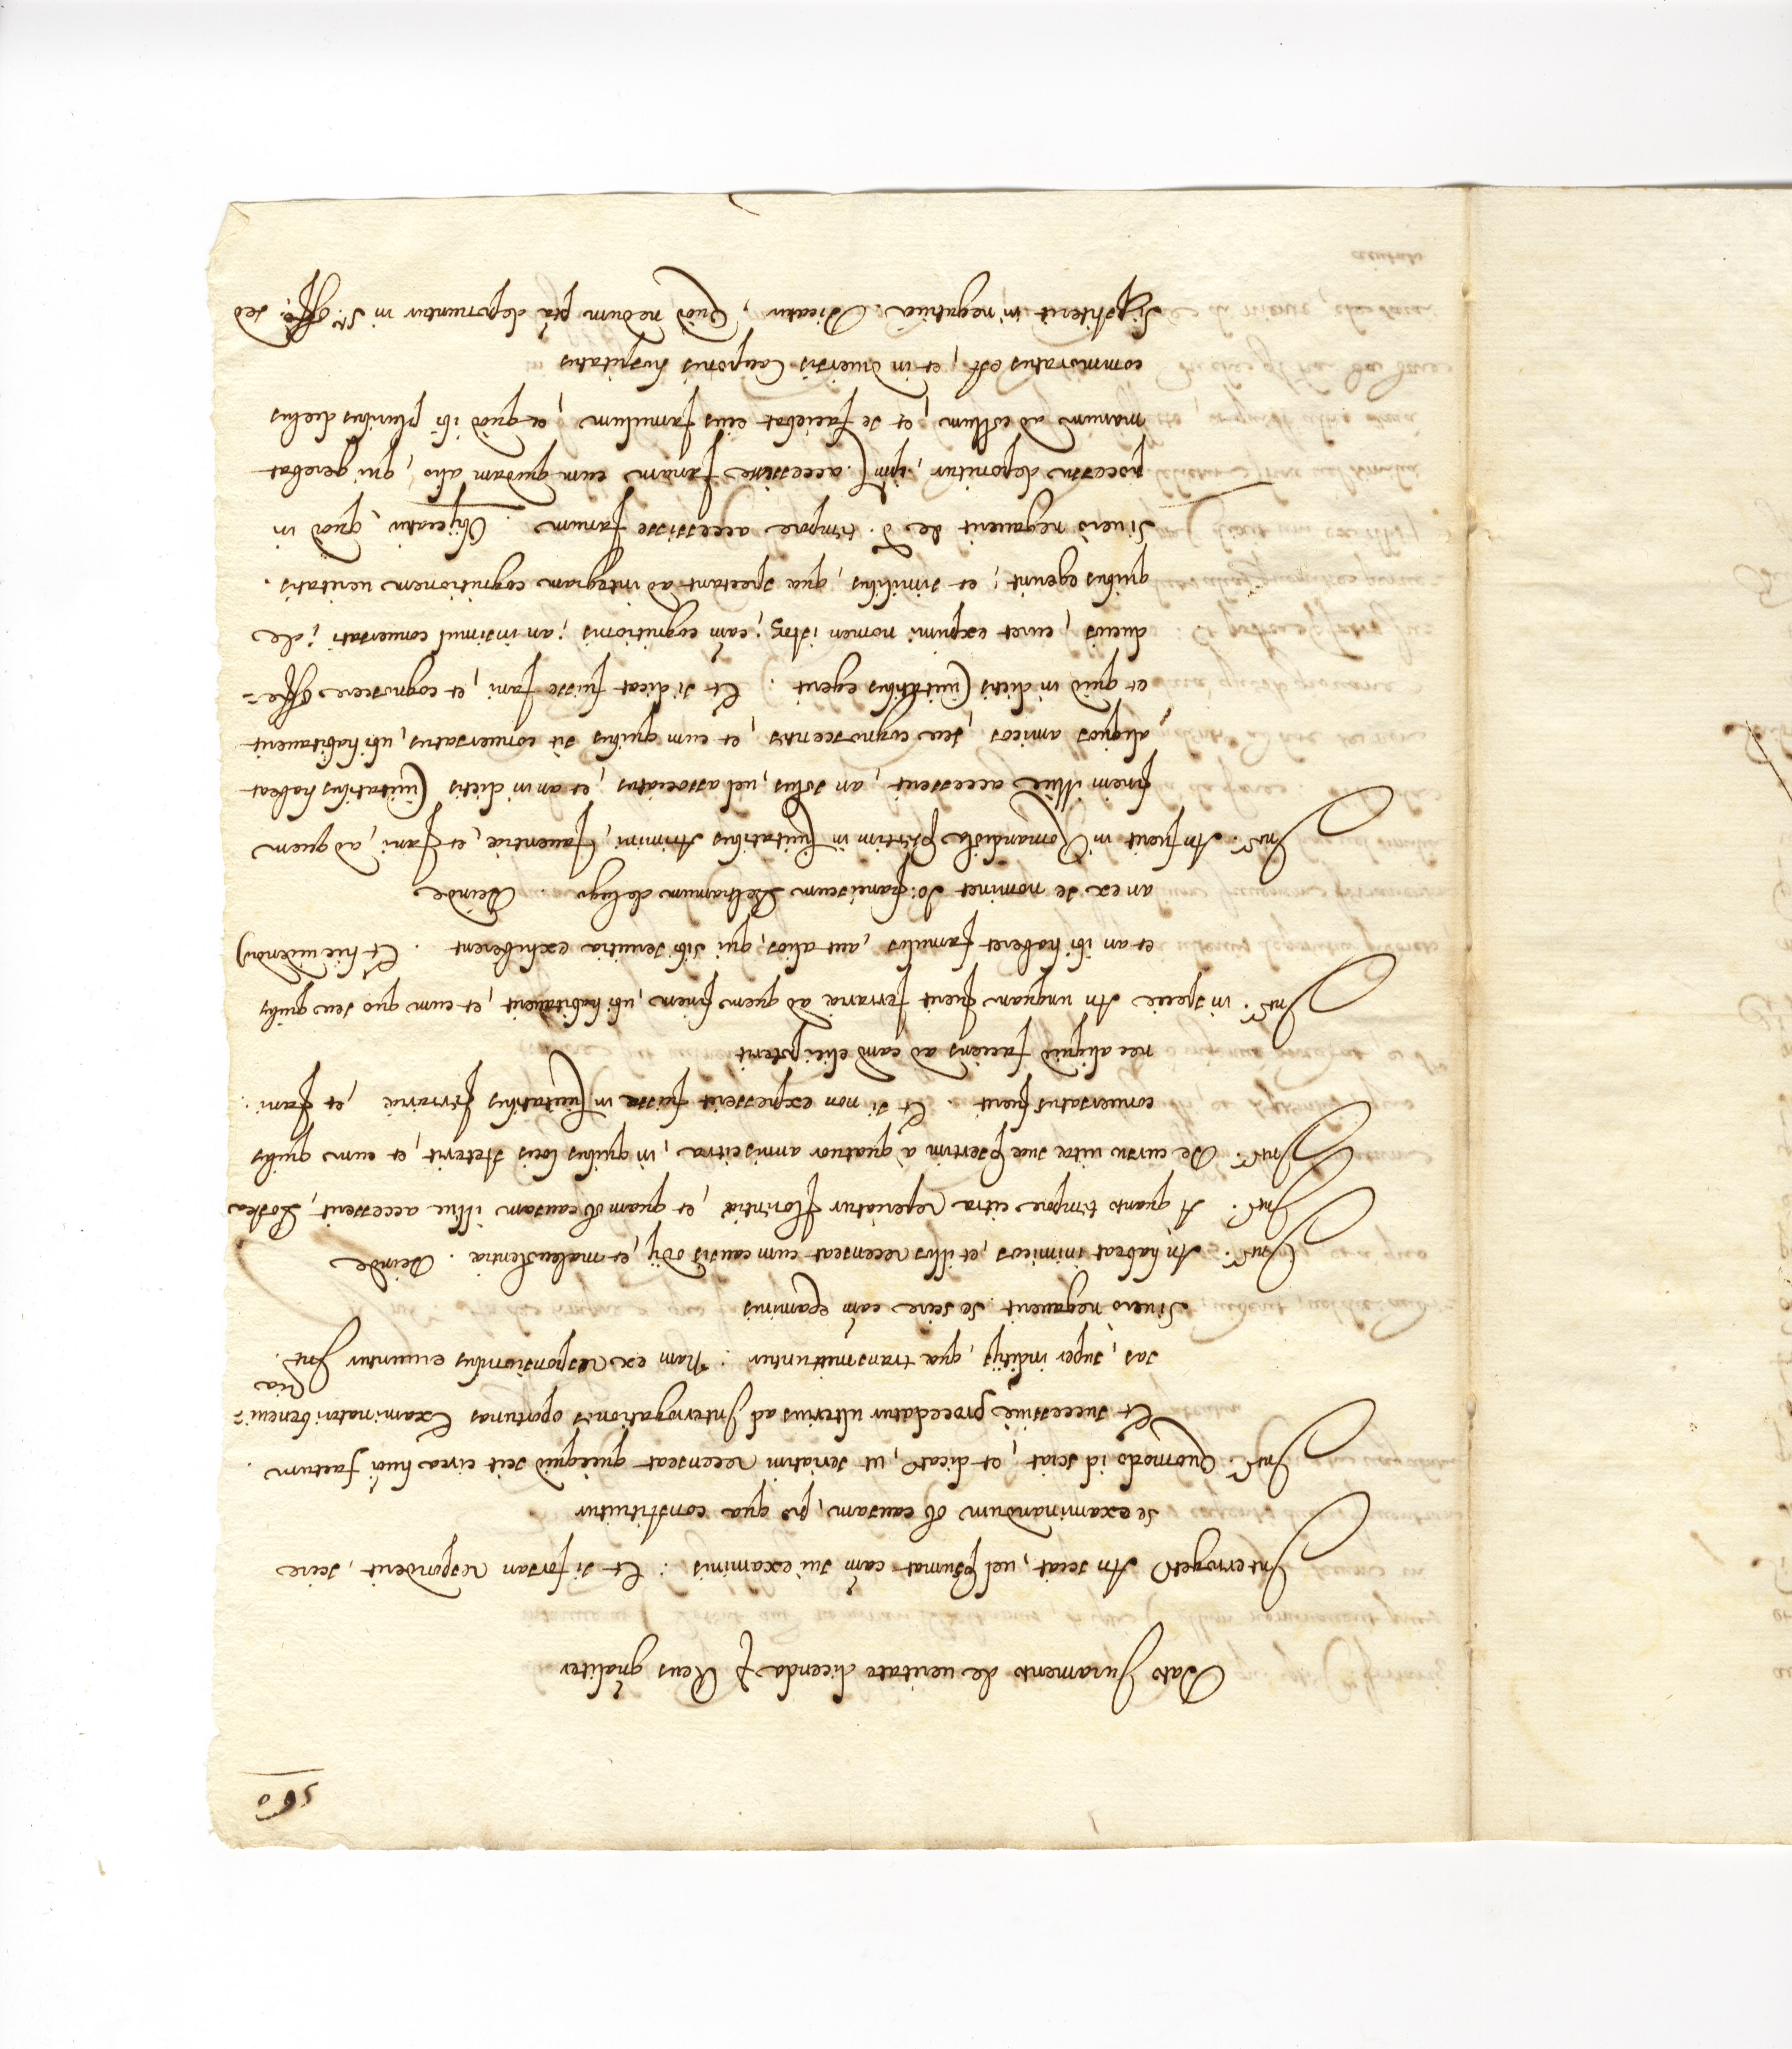 560
Dato Juramento de ueritate dicenda p Reus gnaliter
Interroget An sciat, uel psumat cam sui examinis : Et si forsan responderit, scire
se examinandum ob causam, pro qua constituitur
Intr. Quomodo id sciat, et dicat, ut seriatim recenseat quicquid scit circa huoi factum.
Et successiuè procedatur ulterius ad Interrogationes oportunas Examinatori beneui=
sas, super inditijs, quæ transmittuntur : Nam ex responsionibus eliciuntur Intria.
Si uero negauerit se scire cam examinis
Intr. An habeat inimicos, et illos recenseat cum causis odij, et maleuolentiæ. Deinde
Intr. A quanto tempore citra reperiatur Florentiæ, et quam ob causam illuc accesserit, Postea
Intr. De cursu uitæ suæ psertim à quatuor annis citra, in quibus locis steterit, et cum quibus
conuersatus fuerit. Et si non expresserit fuisse in Ciuitatibus Ferrariæ, et Fani:
nec aliquid faciens ad cam elici poterit
Intr. in specie An unquam fuerit Ferrariæ ad quem finem, ubi habitauerit, et cum quo seu quibus
et an ibi haberet famulos, aut alios, qui sibi seruitia exhiberent. Et hic uidendum
an ex se nominet Jo: Franciscum de Lugo. Deinde
Intr. An fuerit in Romandiola psertim in Ciuitatibus Arimini, Fauentiæ, et Fani, ad quem
finem illuc accesserit, an solus, uel associatus, et an in dictis Ciuitatibus habeat
aliquos amicos, seu cognoscentes, et cum quibus sit conuersatus, ubi habitauerit
et quid in dictis Ciuitatibus egerit : Et si dicat fuisse Fani, et cognoscere
curet exprimi nomen istor, cam cognitionis, an insimul conuersati, de
quibus egerint, et similibus, quæ spectant ad integram cognitionem ueritatis.
Si uerò negauerit de d. tempore accessisse Fanum. Obijciatur, quòd in
processu deponitur, ipm accessisse Fanum cum quodam alio, qui gerebat
manum ad collum, et se faciebat eius famulum, et quòd ibi pluribus diebus
commoratus est, et in diuersis Cauponis hospitatus
Si pstiterit in negatiua. Dicatur, Quòd nedum pta deponuntur in S.to Offo. sed